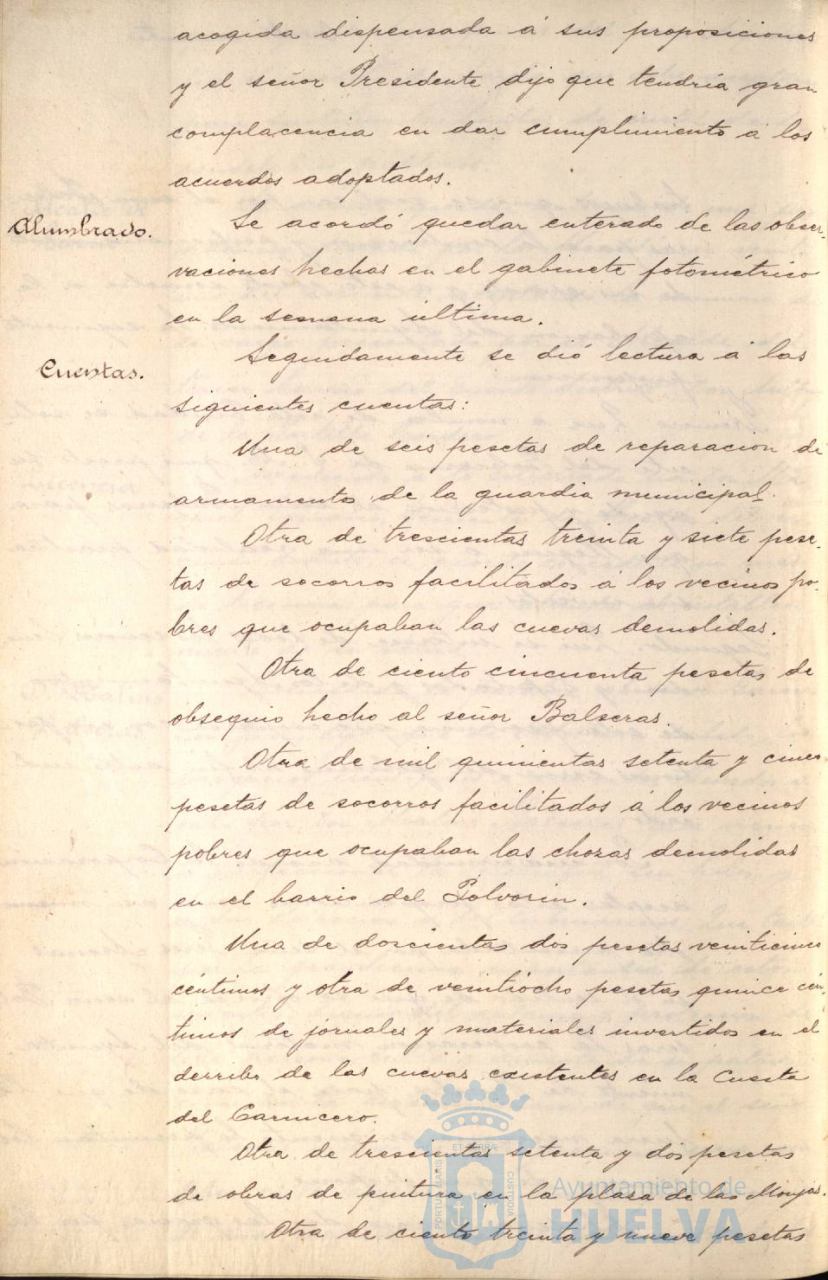 acogida dispensada á sus proposiciones
y el señor Presidente dijo que tendría gran
complacencia en dar cumplimiento á los
acuerdos adoptados.
Alumbrado.
Se acordó quedar enterado de las obser-
vaciones hechas en el gabinete fotométrico
en la semana última.
Cuentas.
Seguidamente se dió lectura á las
siguientes cuentas:
Una de seis pesetas de reparacion de
armamento de la guardia municipal.
Otra de trescientas treinta y siete pese-
tas de socorros facilitados á los vecinos po-
bres que ocupaban las cuevas demolidas.
Otra de ciento cincuenta pesetas de
obsequio hecho al señor Balseras.
Otra de mil quinientas setenta y cinco
pesetas de socorros facilitados á los vecinos
pobres que ocupaban las chozas demolidas
en el barrio del Polvorin.
Una de doscientas dos pesetas veinticinco
céntimos y otra de veintiocho pesetas quince cén-
timos de jornales y materiales invertidos en el
derribo de las cuevas existentes en la Cuesta
del Carnicero.
Otra de trescientas setenta y dos pesetas
de obras de pintura en la plaza de las Monjas.
Otra de ciento treinta y nueve pesetas
Ayuntamiento de
HUELVA